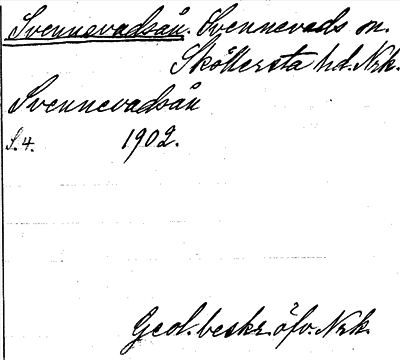 Svennevadsån. Svennevads sn.
Sköllersta hd. Nrk.
Svennevadsån
S. 4. 1902.
Geol. beskr. öfv. Nrk.